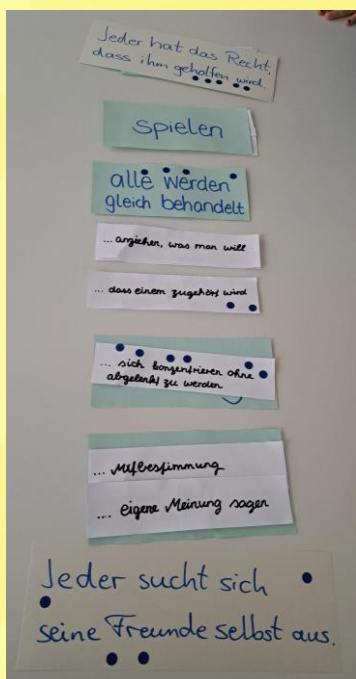 Jeder hat das Recht,
dass ihm geholfen wird.
spielen
alle werden
gleich behandelt
... anziehen, was man will
... dass einem zugehört wird
... sich konzentrieren ohne
abgelenkt zu werden
... Mitbestimmung
... eigene Meinung sagen
Jeder sucht sich
seine Freunde selbst aus.